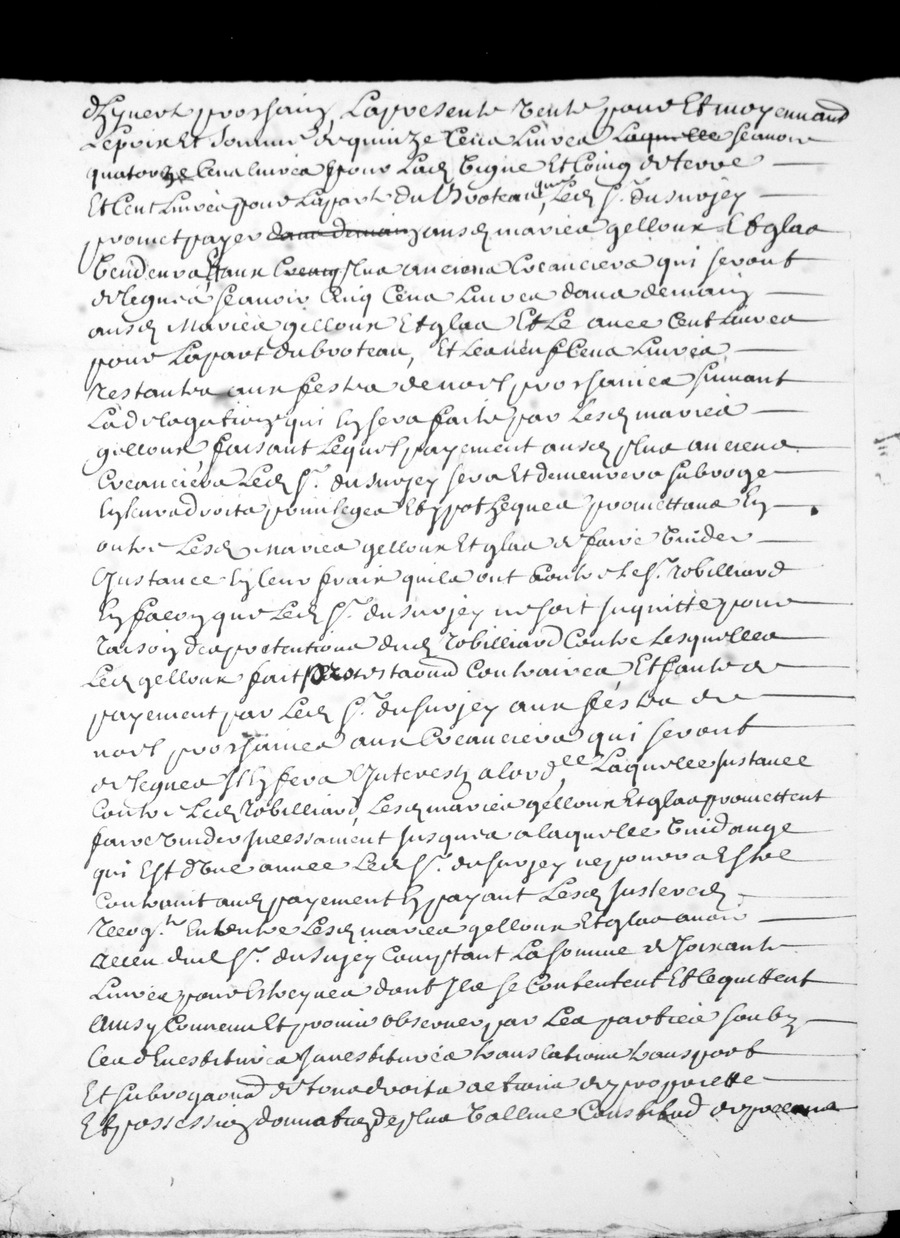 d'hyvert prochain, La presente vente pour Et moyennant
Le prix Et somme de quinze Cens Livres Laquelle scavoir
quatorze Cens livres pour Lad vigne Et Coing de terre
Et Cent Livres pour La part du broteau, que Led Sr. du surjey
promet payer dans demain ausd mariés gelloux Et glas
vendeurs, Et aux plus anciens Creanciers qui seront
delegués scavoir Cinq Cens Livres dans demain
ausd Mariés gelloux Et glas Et Le avec Cent Livres
pour La part du broteau, Et Les neuf Cens Livres
restantes aux festes de noel prochaines suivant
La delegation qui En sera faite par Lesd mariés
gelloux, faisant Lequel payement ausd plus anciens
Creanciers Led Sr. du surjey sera Et demeurera subrogé
En leurs droits privileges Et hypotheques promettans En
outre Lesd mariés gelloux Et glas de faire vuider
Instance En leur frais quils ont Contre Le Sr. Robilliard
En façon que Led Sr. du surjey ne soit Inquitté pour
raison des pretentions dud Robilliard Contre Lesquelles
Led gelloux fait protestaõnd Contraires Et faute de
payement par Led Sr. du surjey aux festes de
noel prochaines aux Creanciers qui seront
delegués Il En fera Interests a lordee Laquelle Instance
Contre Led Robilliard, Lesd mariés gelloux Et glas promettent
faire vuider Incessament Jusques a laquelle vuidange
qui Est d'une année Led Sr. du surjey ne pourra Estre
Contraint aud payement En payant Lesd Interests
Recog.t Entoutre Lesd mariés gelloux Et glas avoir
receu dud Sr. du surjey Comptant La somme de soixante
Livres pour Estreynes dont Ils se Contentent Et le quittent
Ainsy Convenu Et promis observer par Les parties soubz
Ces d'Envestitures Janvestitures translations transport
Et subrogaõnd de tous droits actions de proprieté
Et possession donnation de plus vallue Constitud de precaire